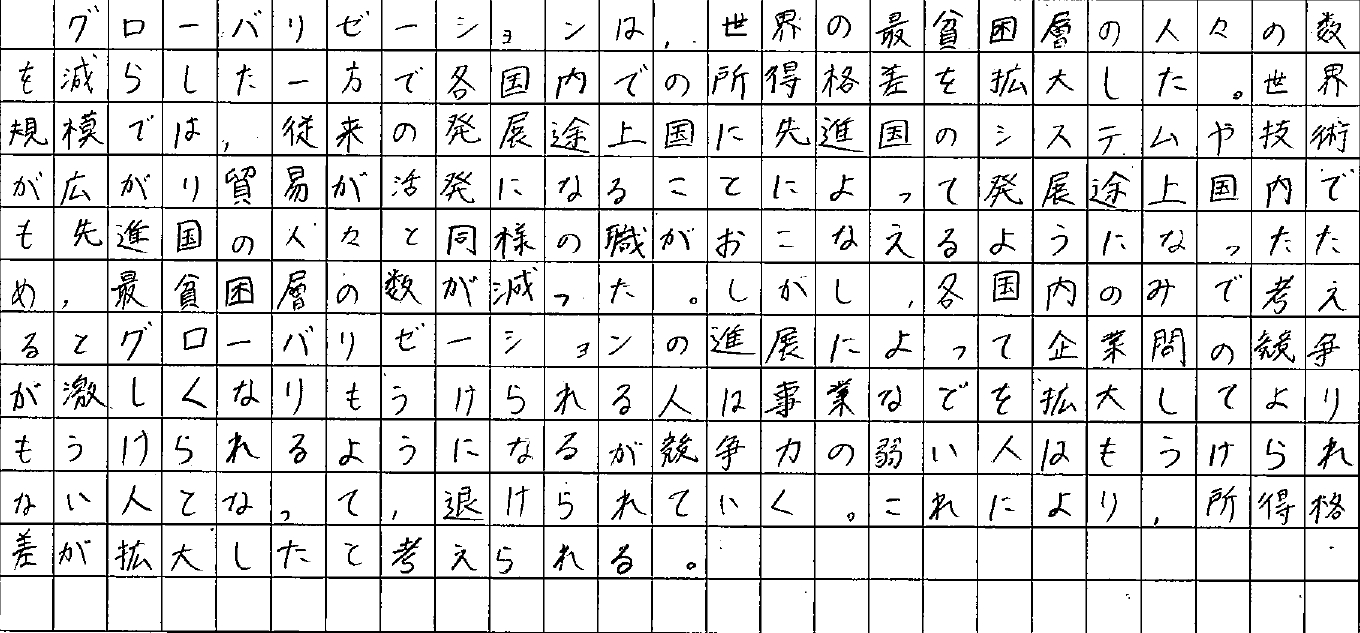 グローバリゼーションは,世界の最貧困層の人々の数
を減らした一方で各国内での所得格差を拡大した。世界
規模では,従来の発展途上国に先進国のシステムや技術
が広がり貿易が活発になることによって発展途上国内で
も先進国の人々と同様の職がおこなえるようになったた
め,最貧困層の数が減った。しかし,各国内のみで考え
るとグローバリゼーションの進展によって企業間の競争
が激しくなりもうけられる人は事業などを拡大してより
もうけられるようになるが競争力の弱い人はもうけられ
ない人となって,退けられていく。これにより,所得格
差が拡大したと考えられる。